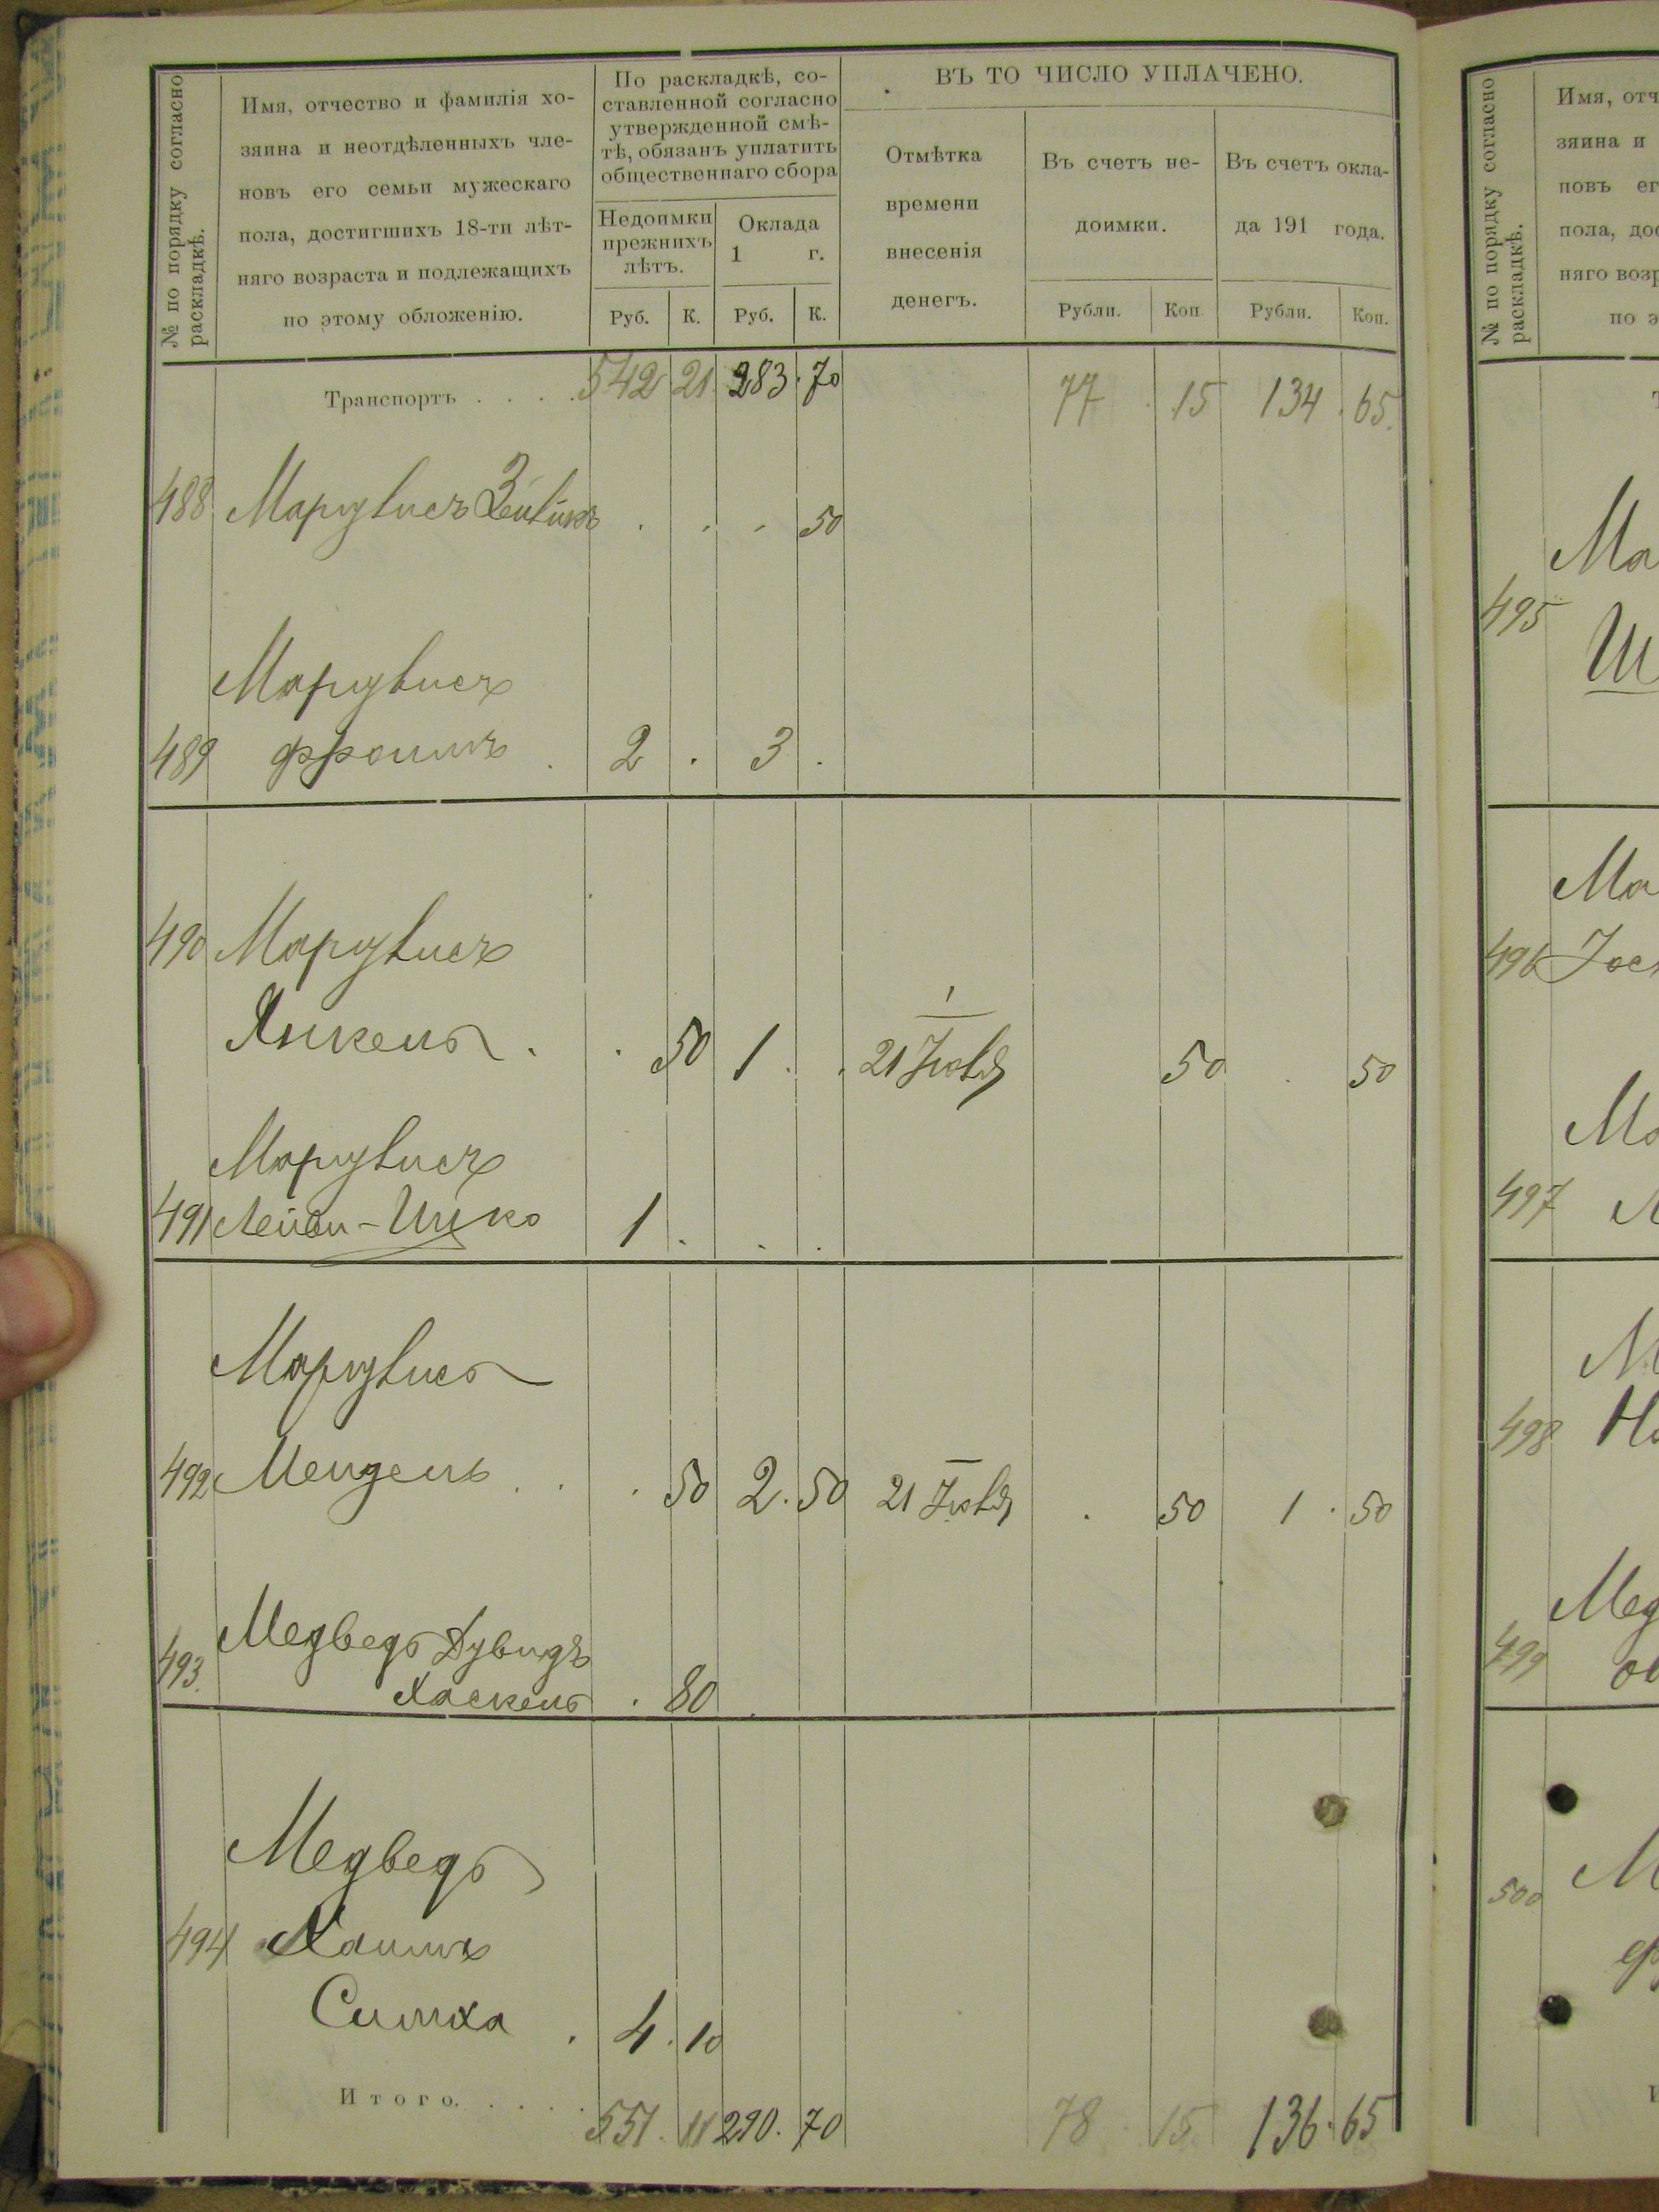 № по порядку согласно
раскладкѣ.
Имя, отчество и фамилія хо-
зяина и неотдѣленныхъ чле-
новъ его семьи мужескаго
пола, достигшихъ 18-ти лѣт-
няго возраста и подлежащихъ
по этому обложенію.
По раскладкѣ, со-
ставленной согласно
утвержденной смѣ-
тѣ, обязанъ уплатить
общественнаго сбора
Недоимки
прежнихъ
лѣтъ.
Оклада
1 г.
Руб. К. Руб. К.
ВЪ ТО ЧИСЛО УПЛАЧЕНО.
Отмѣтка
времени
внесенія
денегъ.
Въ счетъ не-
доимки.
Рубли. Коп.
Въ счетъ окла-
да 191 года.
Рубли. Коп.
Транспортъ . . . . 542 21 283 . 70 77 . 15 134 . 65.
488 Марувисъ . . - 50
Марувисъ
489 Фроимъ . 2 . 3 .
490 Марувисъ
Янкель . . 50 1 . . 21 50 . 50
Марувисъ
491 Лейви-Ицко 1 . . .
Марувисъ
492 Мендель . . . 50 2 . 50 21 . 50 1 . 50
493. Медведь Дувидъ
Хаскель . 80 .
Медведь
494 Хаимъ
Симха . 4 . 10
Итого. . . . . 551 . 11 290 . 70 78 . 15 136 . 65
№ по порядку согласно
раскладкѣ.
Имя, отч
зяина и
новъ ег
пола, дос
няго возр
по э
Ма
495 Ш
Ма
496 Іос
Ма
497
М
498
Мед
499
500 М